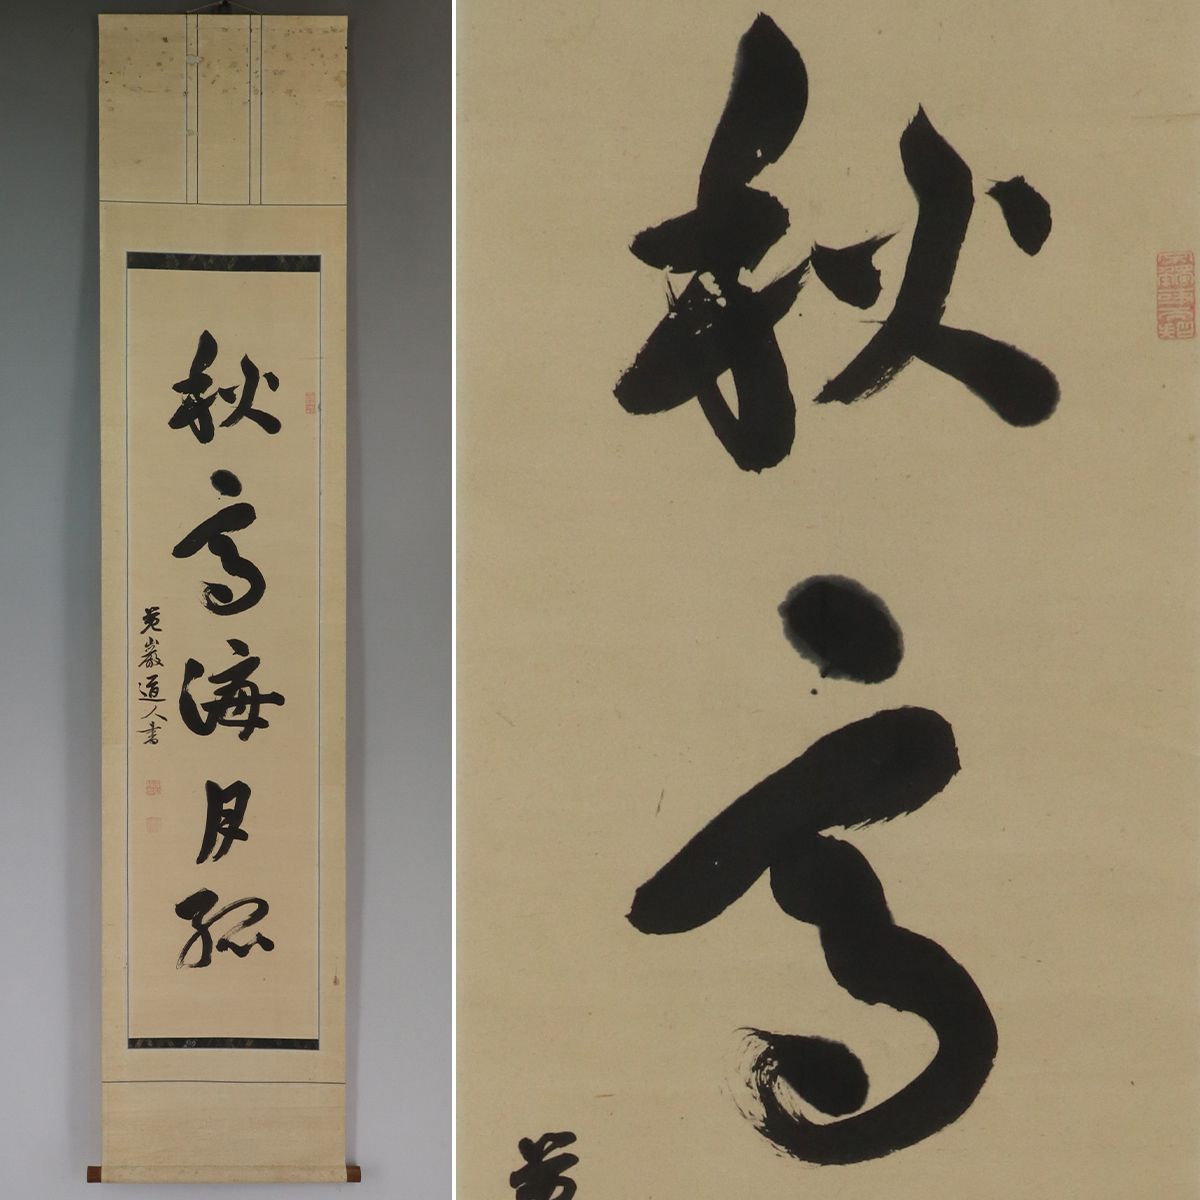 秋高海月孤
巌道人書
秋高